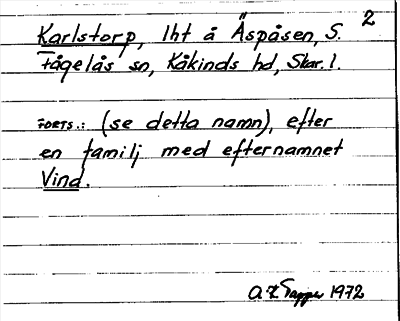 2
Karlstorp, lht å Äspåsen, S.
Fågelås sn, Kåkinds hd, Skar. l.
FORTS.: (se detta namn), efter
en familj med efternamnet
Vind.
1972